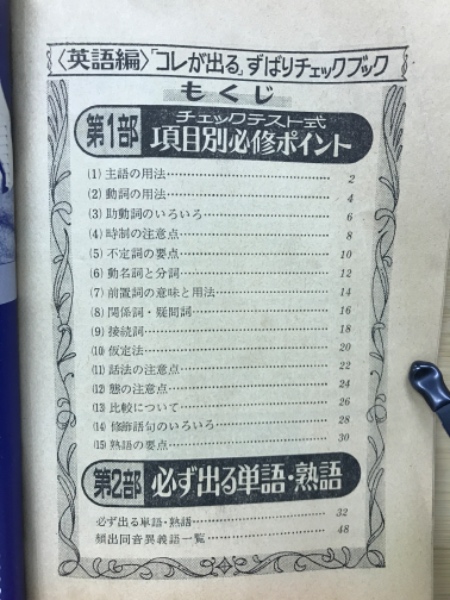 〈英語編〉「コレが出る」ずばりチェックブック
もくじ
第1部 チェックテスト式
項目別必修ポイント
(1) 主語の用法…………2
(2) 動詞の用法…………4
(3) 助動詞のいろいろ…………6
(4) 時制の注意点…………8
(5) 不定詞の要点…………10
(6) 動名詞と分詞…………12
(7) 前置詞の意味と用法…………14
(8) 関係詞・疑問詞…………16
(9) 接続詞…………18
(10) 仮定法…………20
(11) 話法の注意点…………22
(12) 態の注意点…………24
(13) 比較について…………26
(14) 修飾語句のいろいろ…………28
(15) 熟語の要点…………30
第2部 必ず出る単語・熟語
必ず出る単語・熟語…………32
頻出同音異義語一覧…………48